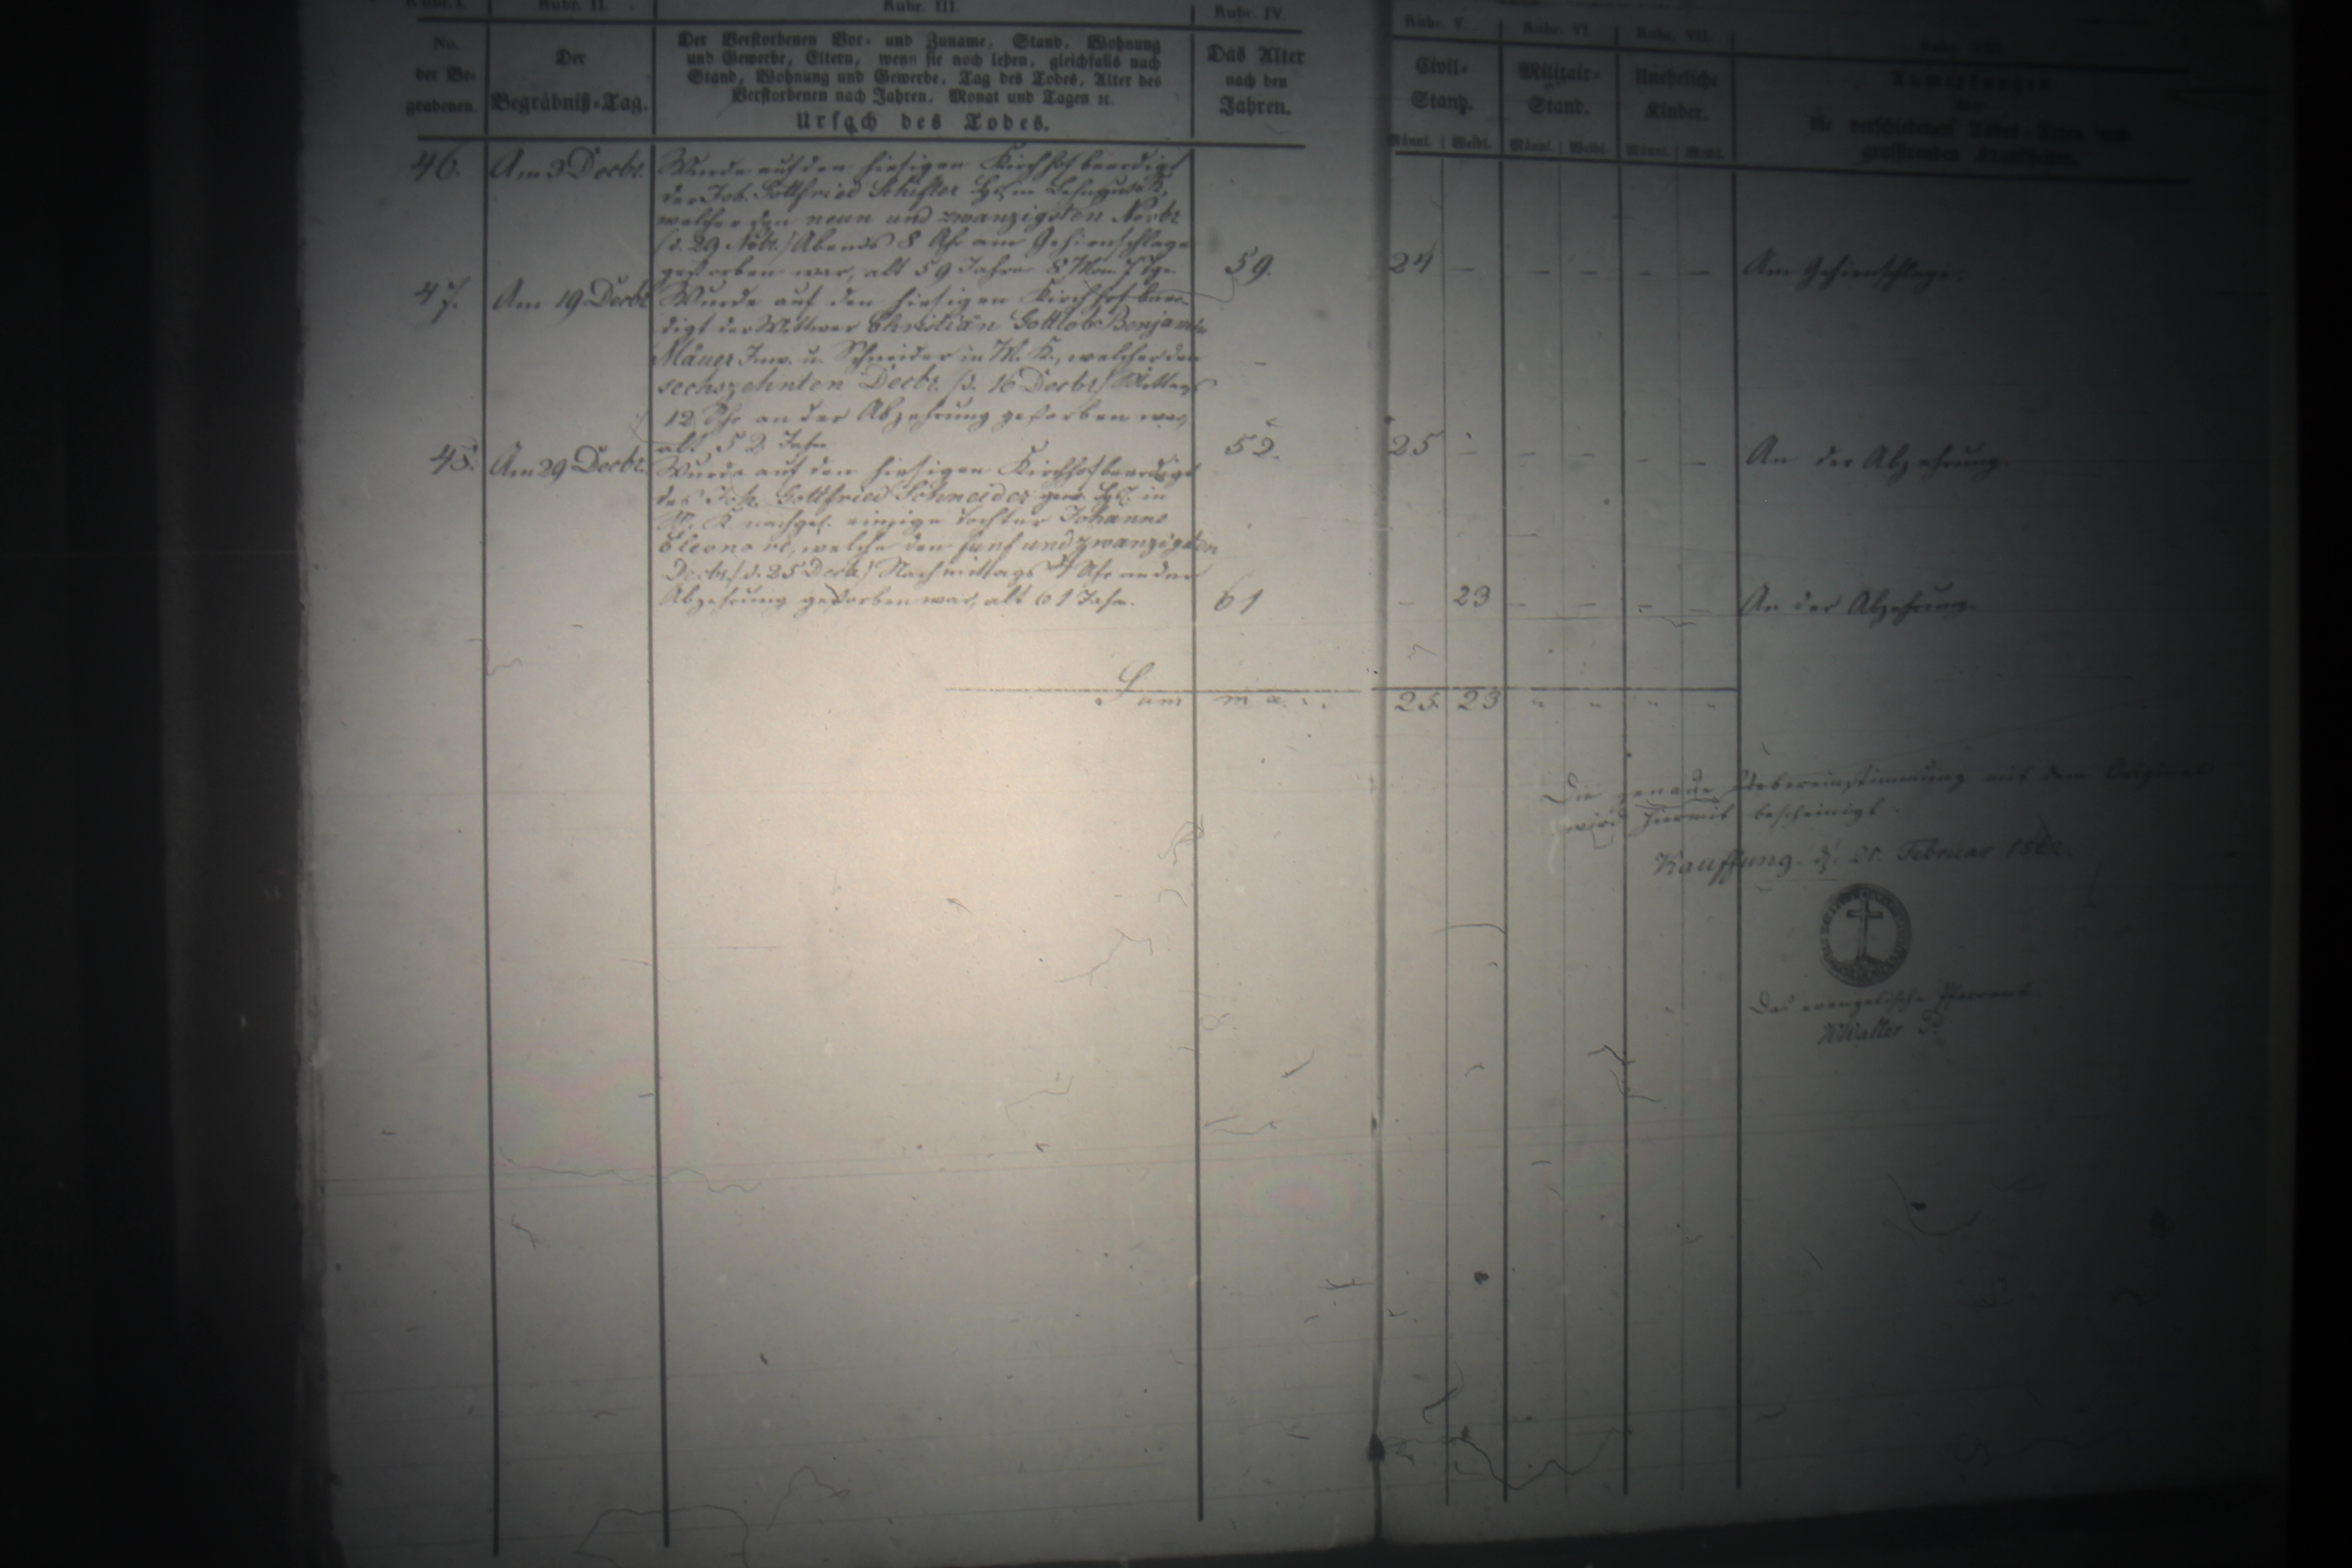 Rubr. I. Rubr. II. Rubr. III. Rubr. IV. Rubr. V. Rubr. VI. Rubr. VII.
No. der Be- grabenen.
Der Begräbniß-Tag.
Der Verstorbenen Vor- und Zuname, Stand, Wohnung
und Gewerbe, Eltern, wenn sie noch leben, gleichfalls nach
Stand, Wohnung und Gewerbe, Tag des Todes, Alter des
Verstorbenen nach Jahren, Monat und Tagen ꝛc.
Ursach des Todes.
Das Alter
nach den
Jahren.
Civil-
Stand.
Männl. | Weibl.
Militair-
Stand.
Männl. | Weibl.
Uneheliche
Kinder.
Männl. | Weibl.
Anmerkungen
die verschiedenen Todes-Arten und
grassirenden Krankheiten.
46. Am 3 Decbr.
Wurde auf den hiesigen Kirchhof beerdigt
der Joh. Gottfried
welcher den neun und zwanzigsten Novbr
(d. 29 Nvbr.) Abends 8 Uhr am Gehirnschlage
gestorben war, alt 59 Jahre 8 Mon. 7 Tge. 59. 24 – – – – – Am Gehirnschlage.
47. Am 19 Decbr.
Wurde auf den hiesigen Kirchhof beer-
digt der Wittwer Christian Gottlob Benjamin
Mäuer Inw. u. Schneider in M. K., welcher den
sechszehnten Decbr. (d. 16 Decbr.) Mittags
12 Uhr an der Abzehrung gestorben war,
alt 52 Jahr 52. 25 – – – – – An der Abzehrung.
48. Am 29 Decbr.
Wurde auf den hiesigen Kirchhof beerdigt
des Joh. Gottfried Schneider gew. in
M. K. nachgel. einzige Tochter Johanne
Eleonore, welche den fünf und zwanzigsten
Decbr. (d. 25 Decbr.) Nachmittags 4 Uhr an der
Abzehrung gestorben war, alt 61 Jahr. 61 – 23 – – – – An der Abzehrung.
Summa 25. 23 " " " "
Die genaue Uebereinstimmung mit dem Original
wird hiermit bescheinigt.
Kauffung, d. 21. Februar
Das evangelische Pfarramt